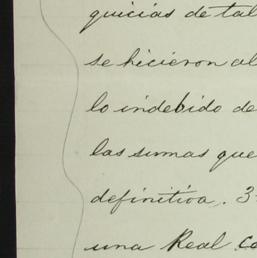 quicias de tal
se hicieron al
lo indebido de
las sumas que
definitiva. 3
una Real